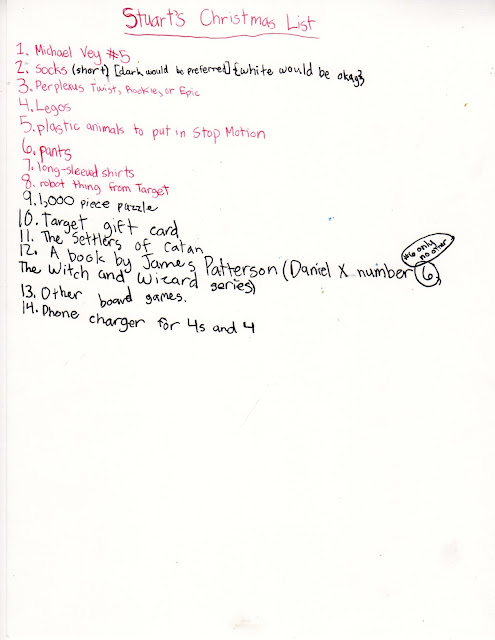 Stuart's Christmas List
1. Michael Vey #5
2. Socks (short) [dark would be preferred] {white would be okay}
3. Perplexus Twist, Rookie, or Epic
4. Legos
5. plastic animals to put in Stop Motion
6. pants
7. long-sleeved shirts
8. robot thing from Target
9. 1,000 piece puzzle
10. Target gift card
11. The Settlers of Catan
12. A book by James Patterson (Daniel X number 6,
#6 only no other
The Witch and Wizard series)
13. Other board games.
14. Phone charger for 4s and 4